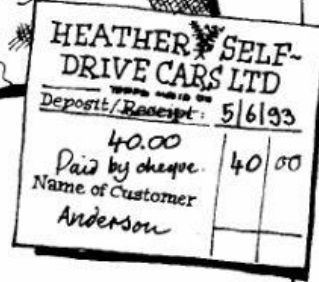 HEATHER SELF-
DRIVE CARS LTD
Deposit/Receipt: 5/6/93
40.00 40 00
Paid by cheque.
Name of Customer
Anderson